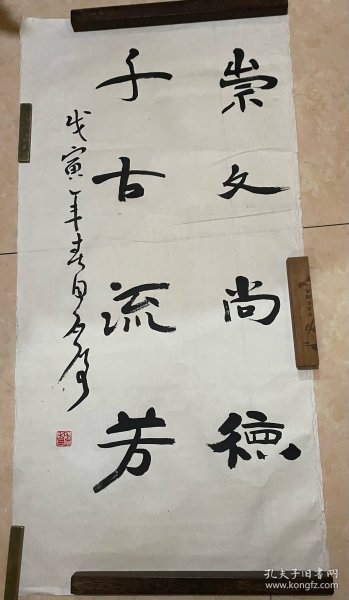 崇文尚德
千古流芳
戊寅年春日石
孔夫子旧书网
www.kongfz.com